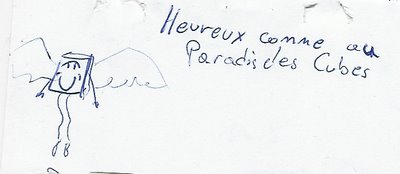 Heureux comme au
Paradis des Cubes